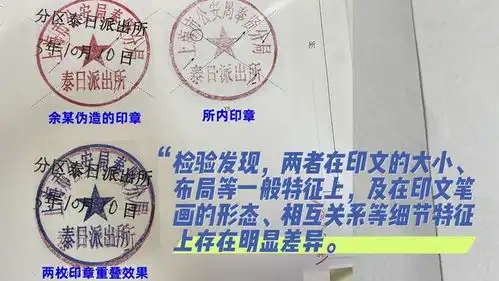 分区泰日派出所
5年10月10日
上海市公安局奉贤分局
泰日派出所
余某伪造的印章
上海市公安局奉贤分局
泰日派出所
所内印章
所
分区泰日派出所
5年10月10日
泰日派出所
两枚印章重叠效果
“检验发现，两者在印文的大小、
布局等一般特征上，及在印文笔
画的形态、相互关系等细节特征
上存在明显差异。